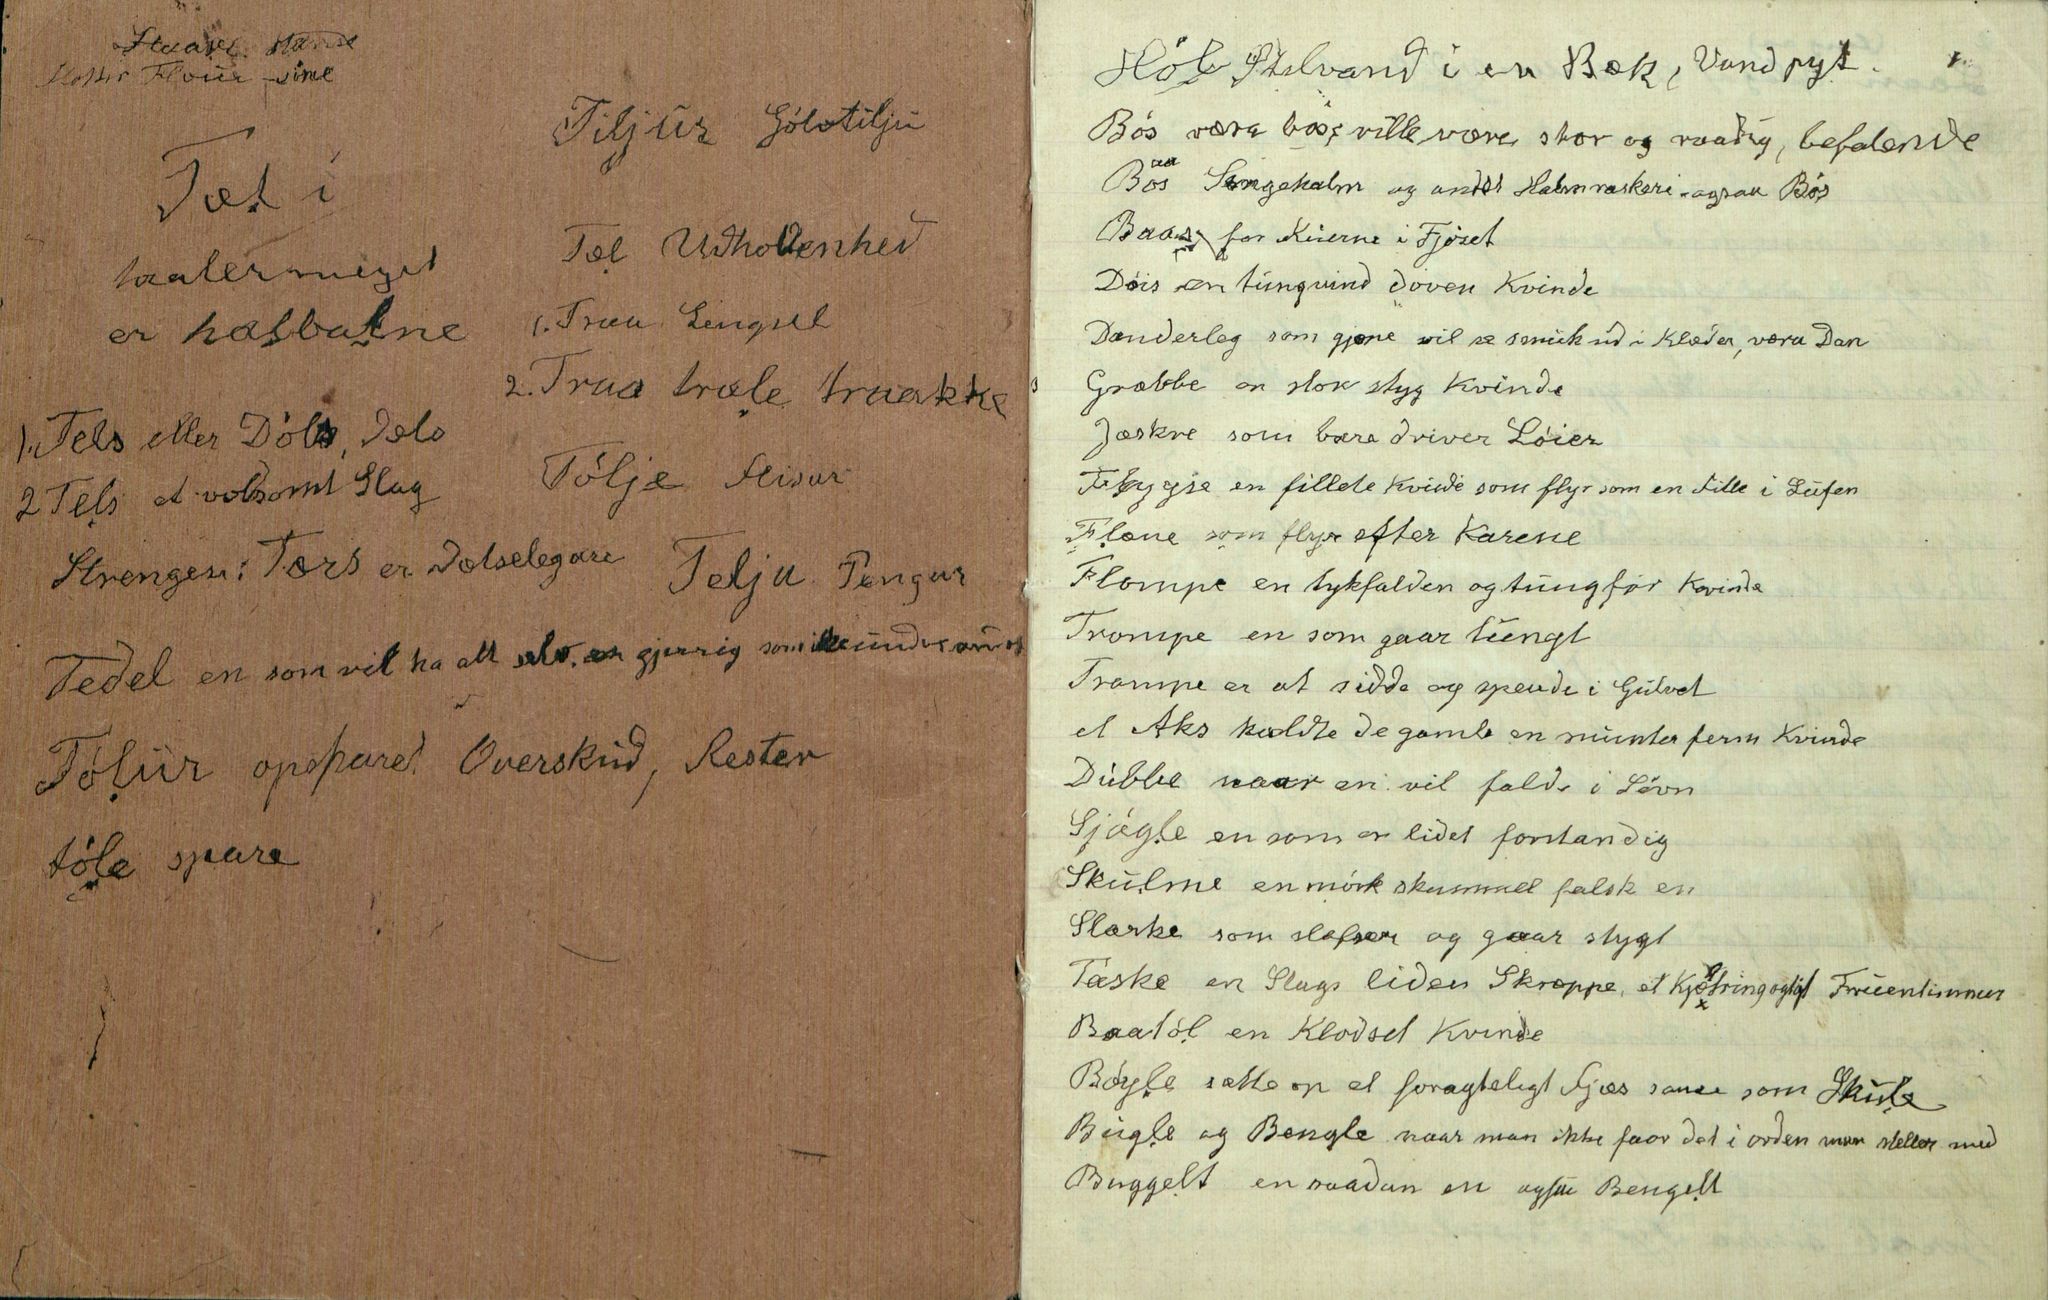 Flour
Tiljur Gólvtilju
Tæl i
taaler meget
er hasbalne
Tæl Udholdenhed
1. Traa Lengsel
2. Traa træle traakke
1. Tels eller Döls, Dæls
2 Tels et voldsomt Slag
Tölje Flisar
Strengen: Tærs er
Telja Pengar
Tedel en som vil ha alt gjerrig som ikke
Tölur opsparet Overskud, Rester
töle spare
Höl Stilvand i en Bæk, Vandpyt.
Bös væra bös, ville være stor og raadig, befalende
Bös Sengehalm og andet ogsaa Bös
Baas for Kuerne i Fjöset
Döis en tungvind doven Kvinde
Danderleg som gjerne vil se smuk ud i Klæder, væra Dan
Græbbe en stor styg Kvinde
Jaskre som bare driver Löier
en fillete Kvinde som flyr som en Fille i Luften
Flæne som flyr efter Karene
Flompe en tykfalden og tungför Kvinde
Trompe en som gaar tungt
Trampe er at sidde og spende i Gulvet
et Aks kaldte de gamle en munter ferm Kvinde
Dubbe naar en vil falde i Sövn
Sjögle en som er lidet forstandig
Skulme en mörk skummel falsk en
Slarke som slafser og gaar stygt
Taske en Slags liden Skræppe, et Fruentimmer
Baatöl en Klodset Kvinde
Böyle sætte op et foragteligt Fjæs same som Skule
Bugle og Bengle naar man ikke faar det i orden man steller med
Buggelt en saadan en ogsaa Bengelt